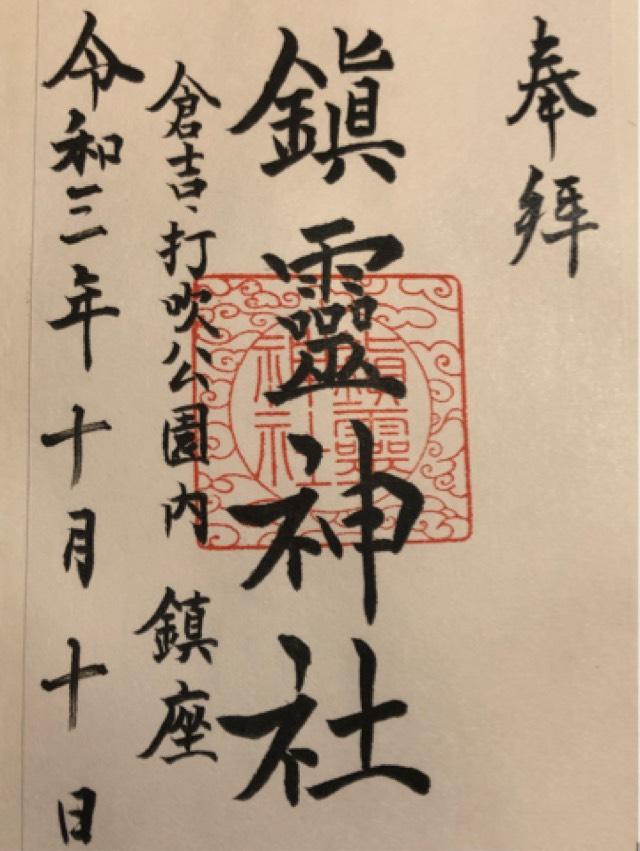 奉拜
鎮靈神社
鎮靈
神社
倉吉・打吹公園内 鎮座
令和三年十月十日